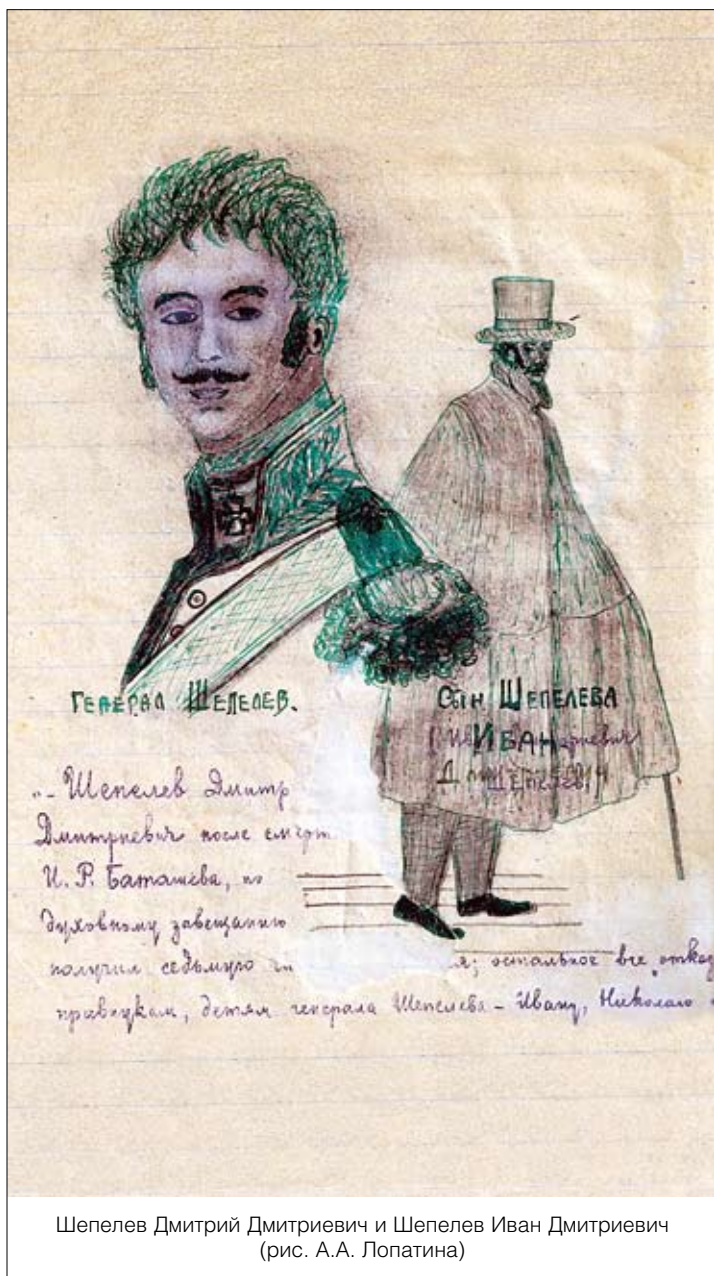 ГЕНЕРАЛ ШЕПЕЛЕВ.
СЫН ШЕПЕЛЕВА
ИВАН
„– Шепелев Дмитр
Дмитриевич после смерт
И. Р. Баташёва, по
духовному завещанию
получил седьмую остальное все отказ
правнукам, детям генерала Шепелева – Ивану, Николаю
Шепелев Дмитрий Дмитриевич и Шепелев Иван Дмитриевич
(рис. А.А. Лопатина)